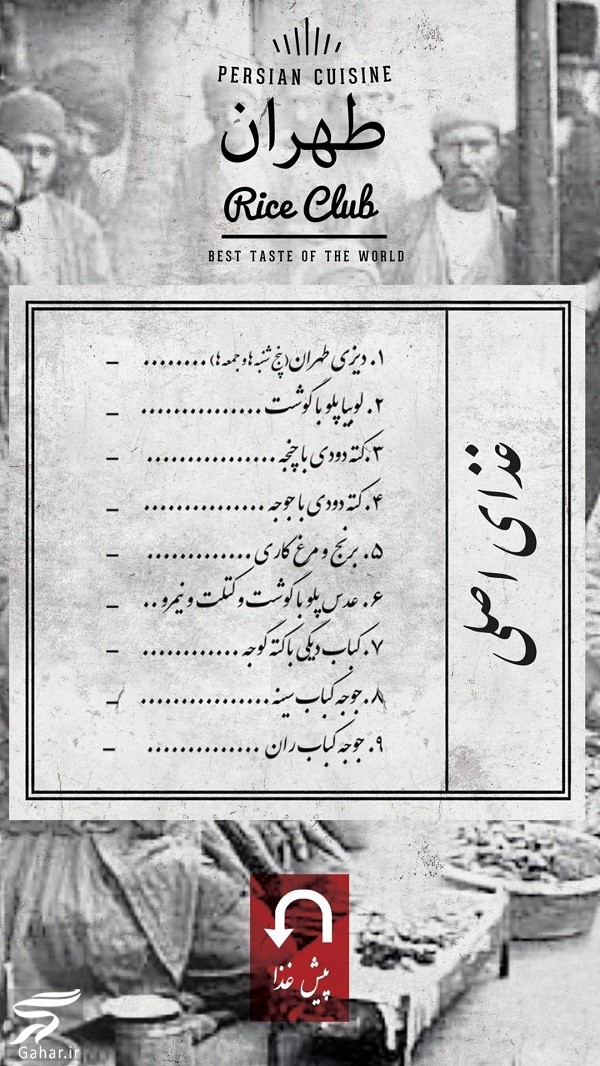 PERSIAN CUISINE
طهران
Rice Club
BEST TASTE OF THE WORLD
غذای اصلی
۱. دیزی طهران (پنج شنبه ها و جمعه ها) ........ _
۲. لوبیا پلو با گوشت ............... _
۳. کته دودی با چنجه ................ _
۴. کته دودی با جوجه ............... _
۵. برنج و مرغ کاری ............. _
۶. عدس پلو با گوشت و کتلت و نیمرو .. _
۷. کباب دیگی با کته گوجه ............ _
۸. جوجه کباب سینه ................ _
۹. جوجه کباب ران .............. _
پیش غذا
Gahar.ir